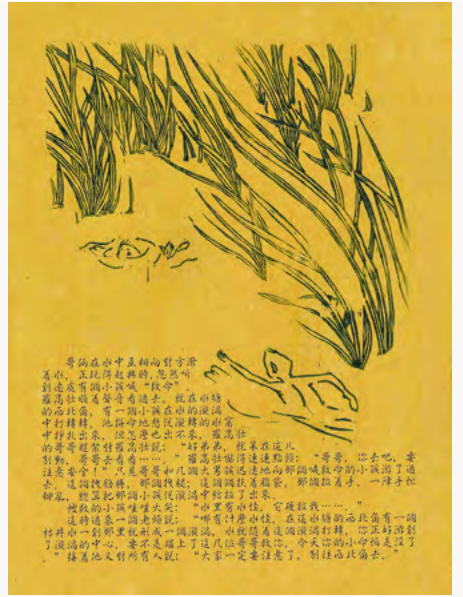 哥倆在水中互相向對方潑
着水，正玩得起興時，忽然听
到遠處有個小孩喊“救命”。
羅高壯順着聲音看過去，就在水塘
的西北角，有一個小孩在水的漩渦
中打轉轉，他拼命地想從漩渦的水窩
中掙扎出來，但怎麼也出不來。羅高壯
的哥哥趕緊對羅高壯說：“好弟弟，就呆在這儿
別動，哥哥去看看……”羅高壯嚇得連連點頭：“哥哥，你去吧，要
注意安全！”只見哥哥和几個大男孩迅速地向那個喊救命的小孩游了過
去，這個拽胳膊，那個拽腿；這個扶着腦袋，那個拉着手，一陣手忙
腳亂，總算把那個小孩從漩渦中給拉了出來。
被救的小孩哇哇大哭：“水里有水怪，它硬拉我……”
這時過來一個老鄉說：“哪有什麼水怪，在這水塘的西北角有一個
枯井，水一到那里就形成一個漩渦，水就隨着漩渦打轉，你正好游到
了漩渦的中心，要不是碰上了這几位哥哥救你，今天你的小命怕是沒了
。”接着他又對所有人說：“大家一定要注意了，別往西北角去。”